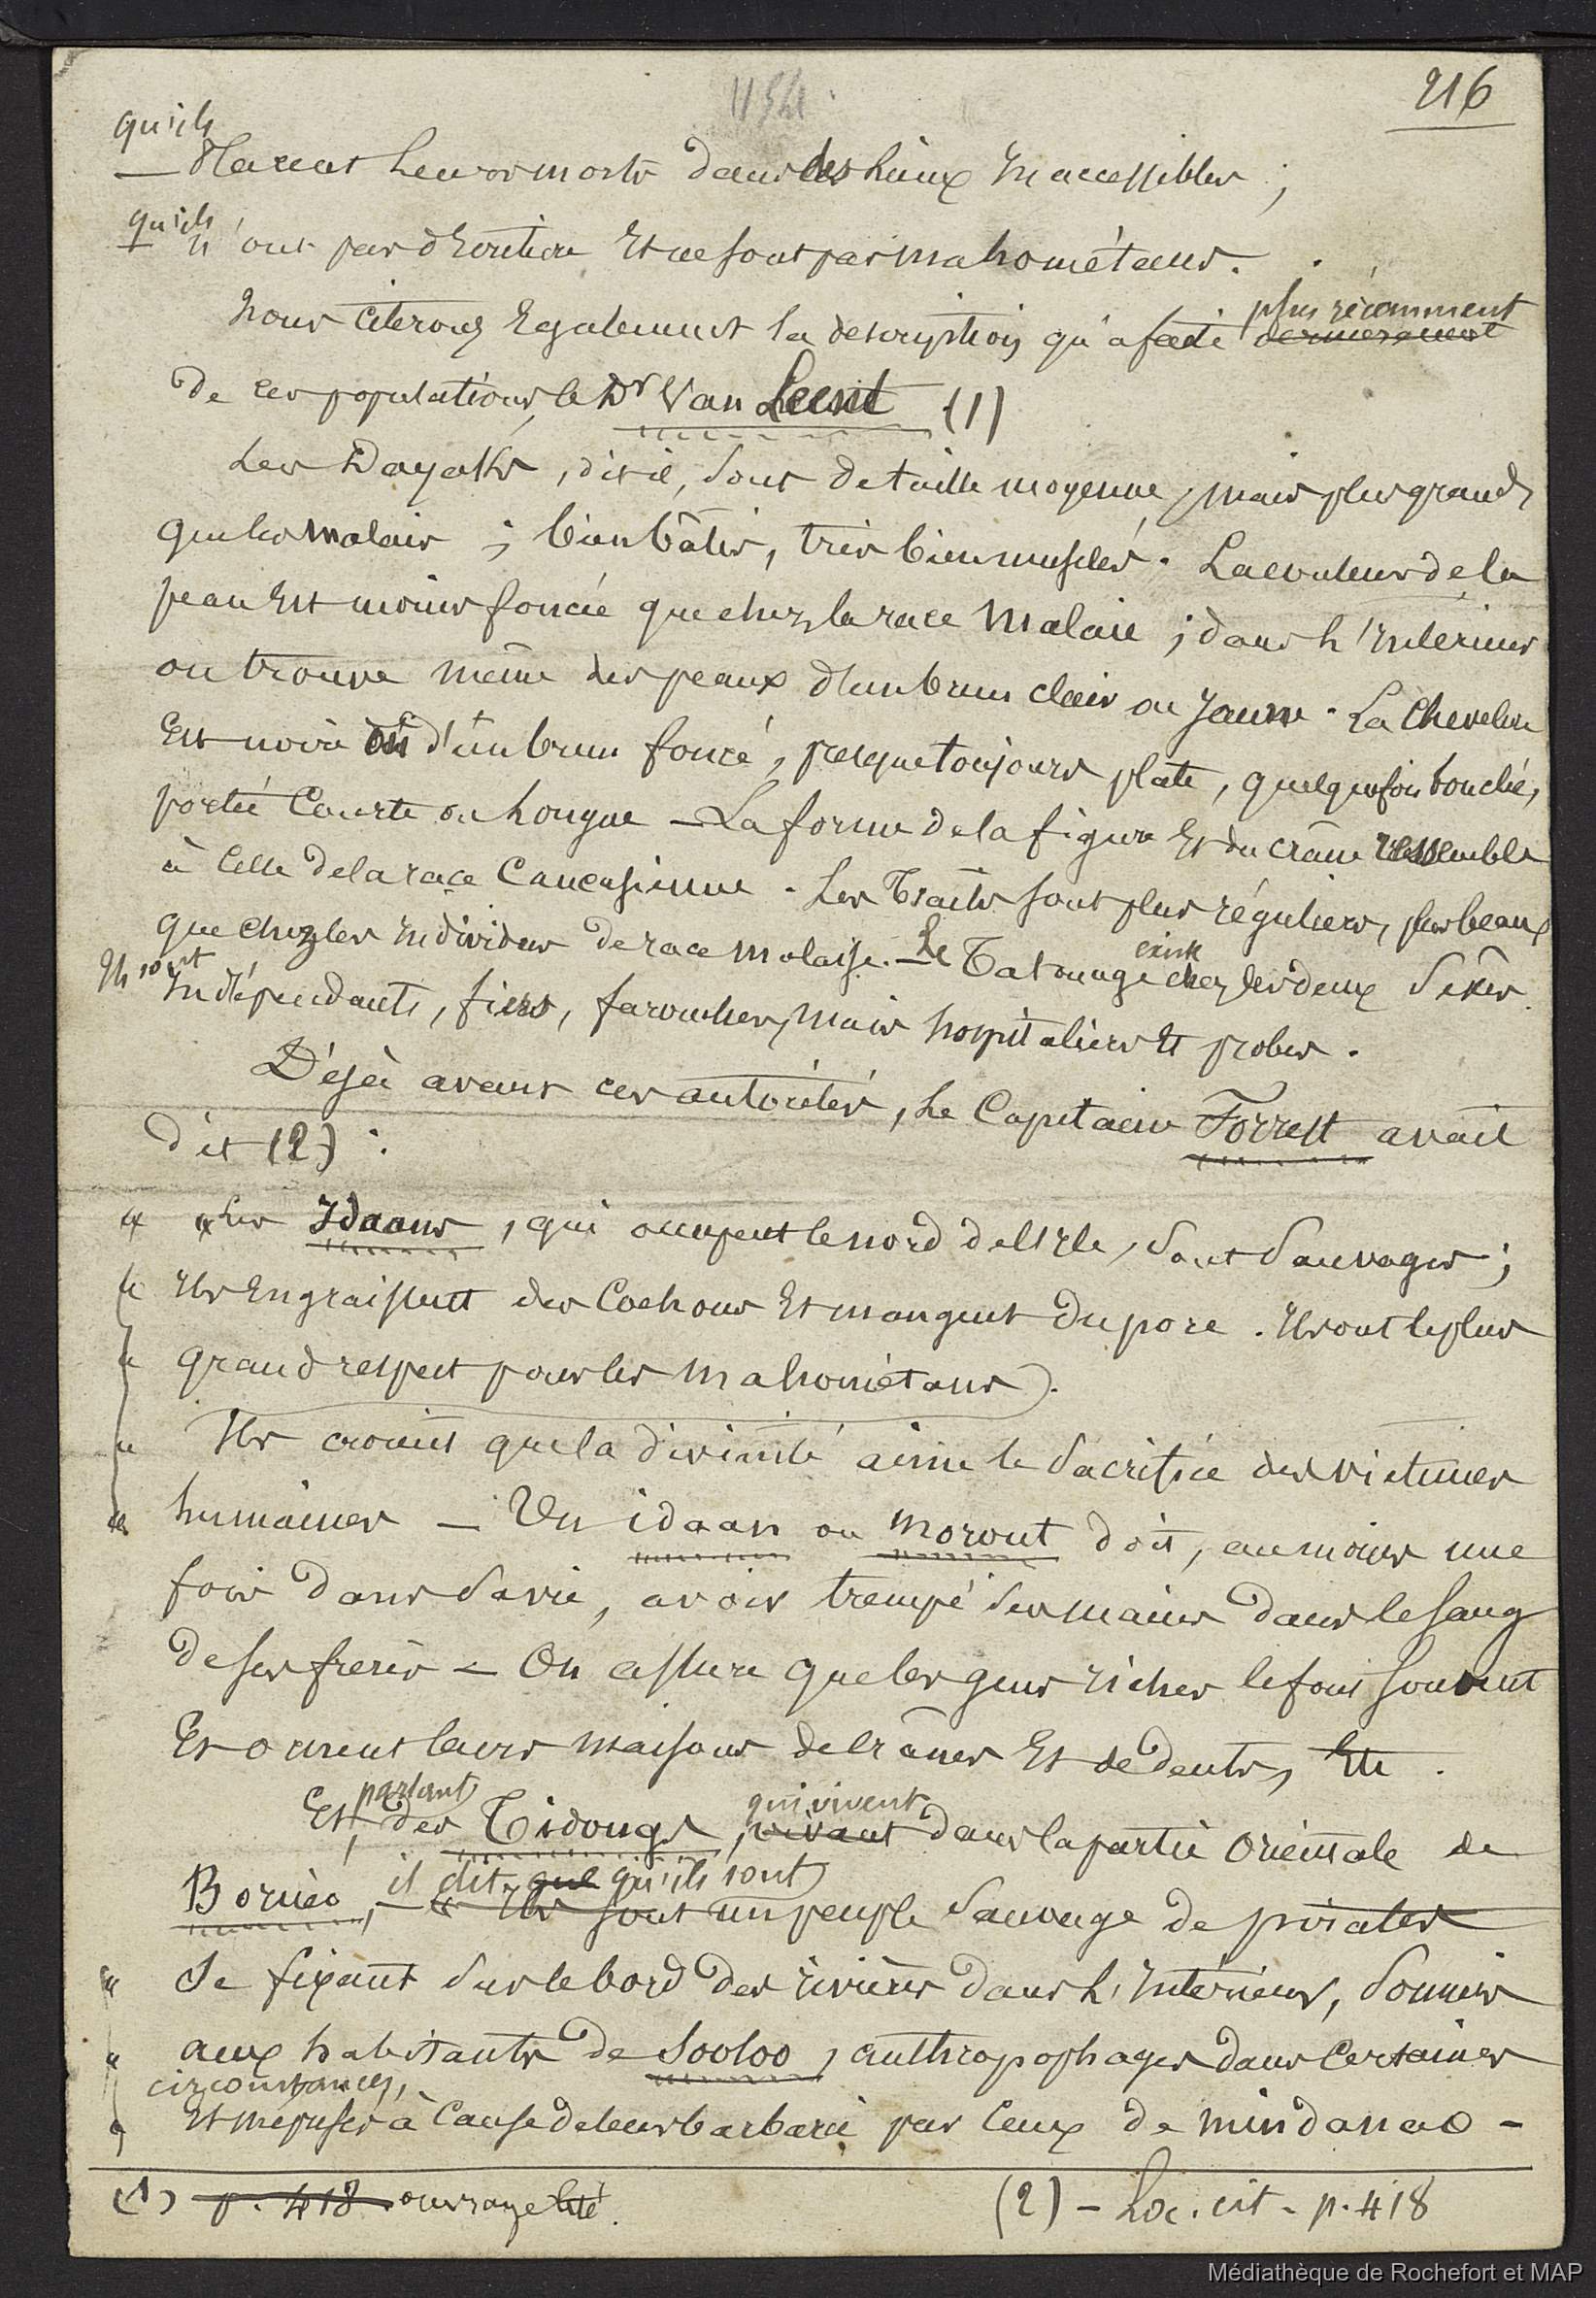 454
216
qu'ils
— Placent Leurs morts dans des Lieux Inaccessibles ;
qu'ils
n'ont pas d'Ecriture Et ne sont pas mahométans.
plus récemment
Nous Citerons Egalement la description qu'a faite dernièrement
de ces populations, le Dr Van Leent (1)
Les Dayaks, dit-il, Sont de taille moyenne, mais plus grands
que les malais ; bien bâtis, très bien musclés. La couleur de la
peau Est moins foncée que chez la race Malaie ; dans L'Intérieur
on trouve même des peaux d'un brun clair ou Jaune. La Chevelure
Est noire ou d'un brun foncé, presque toujours plate, quelquefois bouclée,
portée Courte ou Longue — La forme de la figure Et du crâne ressemble
à Celle de la race Caucasienne. Les Traits sont plus réguliers, plus beaux
que chez les Individus de race malaise. — Le Tatouage existe chez les deux Sexes
Ils sont
Indépendants, fiers, farouches, mais hospitaliers Et probes.
Déjà avant ces autorités, Le Capitaine Forrest avait
dit (2) :
« « Les Idaans, qui occupent le nord de l'Ile, Sont Sauvages ;
« Ils Engraissent des Cochons Et mangent du porc. Ils ont le plus
« grand respect pour les mahométans).
« Ils croient que la divinité aime le Sacrifice des victimes
« humaines — Un idaan ou morout doit, au moins une
fois dans Sa vie, avoir trempé Ses mains dans le Sang
de Ses frères — On assure que les gens riches le font Souvent
Et ornent leurs maisons de crânes Et de dents, Etc.
parlant qui vivent
Et, des Tidongs, vivant dans la partie Orientale de
il dit que qu'ils sont
Bornéo, — « Ils sont un peuple Sauvage de pirates
« Se fixant Sur le bord des rivières dans L'Intérieur, Soumis
« aux habitants de Sooloo, anthropophages dans Certaines
circonstances,
« Et méprisés à Cause de leur barbarie par Ceux de mindanao —
(1) p. 418 ouvrage cité.
(2) — Loc. cit. p. 418
Médiathèque de Rochefort et MAP